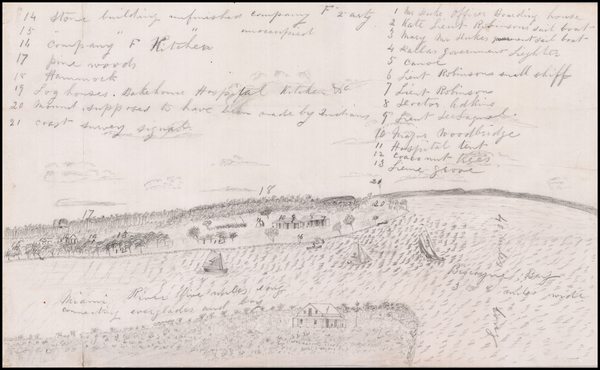 14 Stone building unfinished company "F" 2 arty
15 " " " unoccupied
16 Company "F" Kitchen
17 pine woods
18 Hammock
19 Log houses. Bakehouse Hospital Kitchen &c
20 Mound supposes to have been made by Indians
21 coast survey signal
1 Mr Duke Officers Boarding house
2 Kate Lieut Robinsons sail boat
3 Mary Mr Dukes sail boat
4 Dallas government Lighter
5 Canoe
6 Lieut Robinsons small skiff
7 Lieut Robinsons
8 Doctor Adkins
9 Lieut
10 Major Woodbridge
11 Hospital tent
12 Cocoa nut trees
13 Lime grove
21
18
20
17
Biscayne Bay
3 miles wide
long
Miami River five miles long
connecting everglades and bay